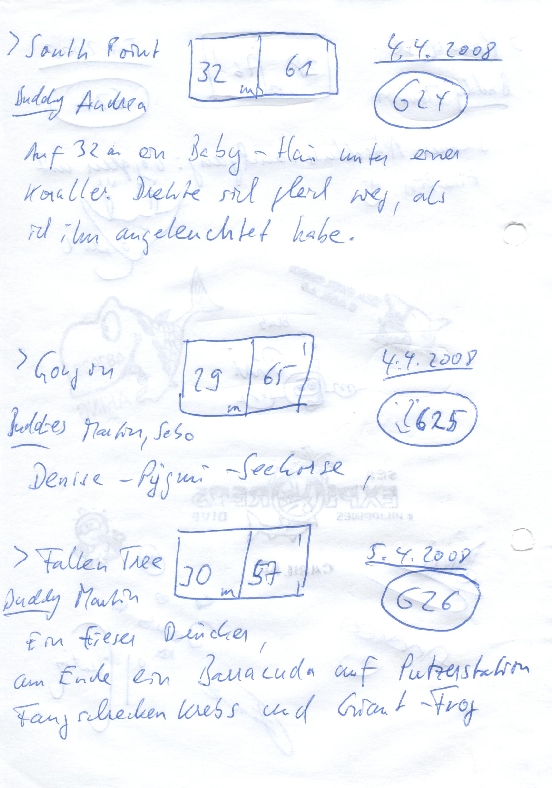 > South Point 32 m 61 4.4.2008
Buddy Andrea 624
Auf 32 m ein Baby-Hai unter einer
Koralle. Drehte sich gleich weg, als
ich ihn angeleuchtet habe.
> Gorgon 29 m 65 ' 4.4.2008
Buddies Martin, Sebo 625
Denise-Pygmi-Seehorse,
> Fallen Tree 30 m 57 ' 5.4.2008
Buddy Martin 626
Ein fieser Drücker,
am Ende ein Barracuda auf Putzerstation
Fangschreckenkrebs und Giant-Frog
SEA
EXPLORERS
PHILIPPINES DIVE